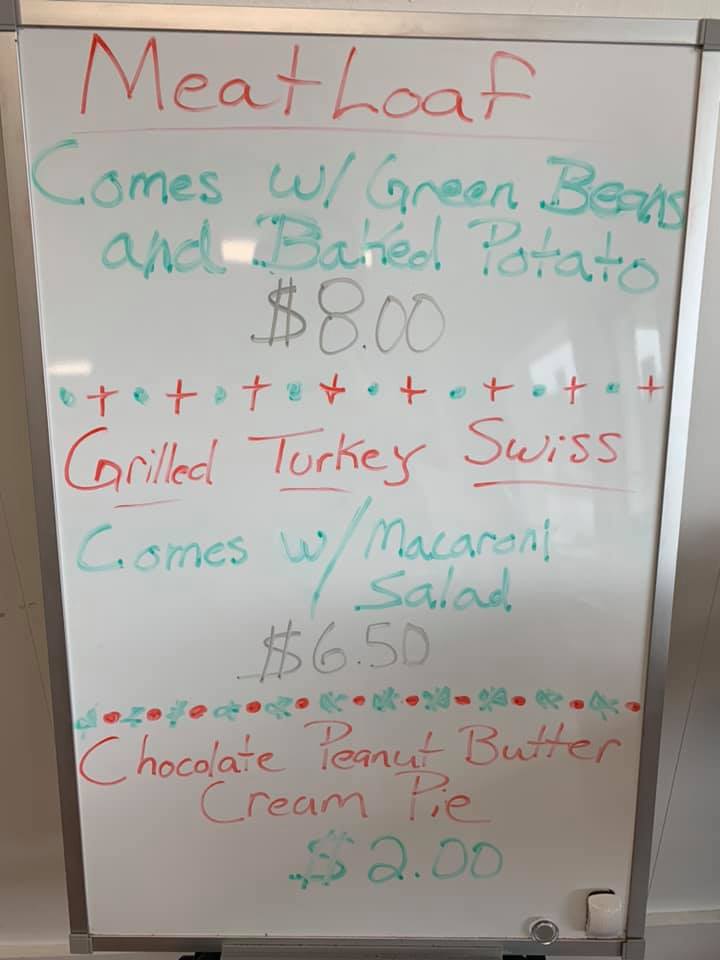 Meat Loaf
Comes w/ Green Beans
and Baked Potato
$8.00
Grilled Turkey Swiss
Comes w/ Macaroni
Salad
$6.50
Chocolate Peanut Butter
Cream Pie
$2.00